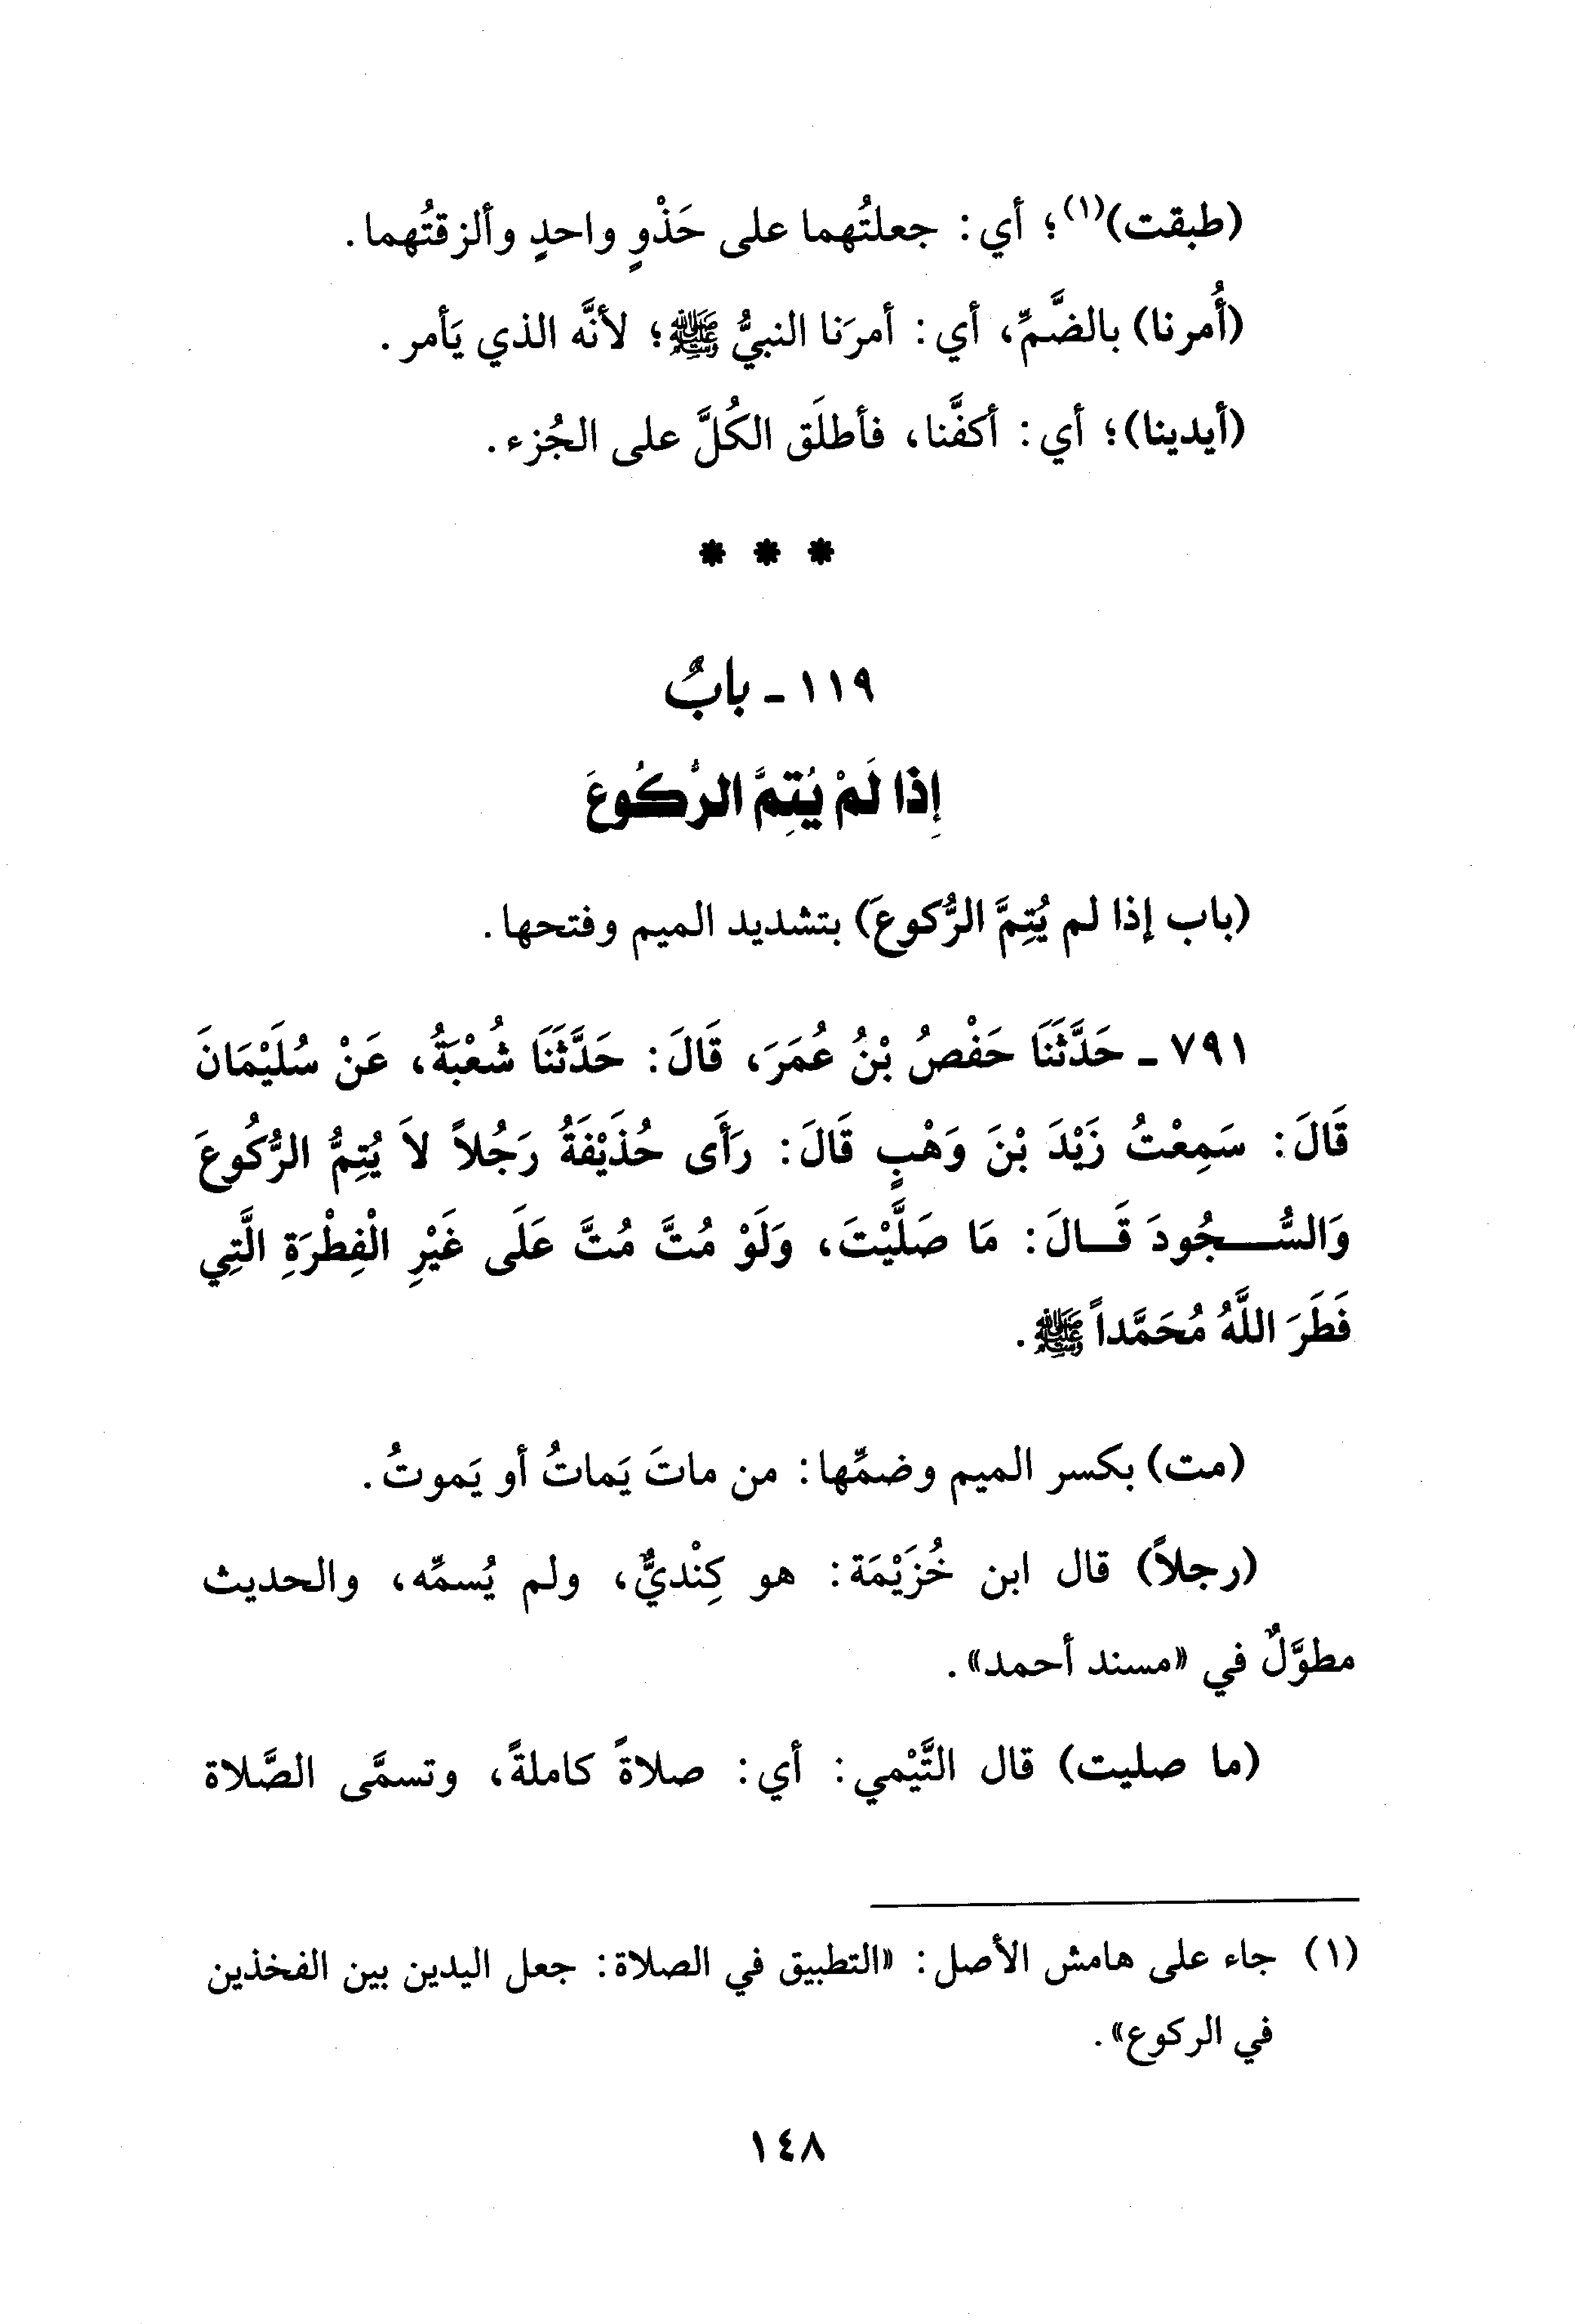 (طبقت)(١)؛ أي: جعلتُهما على حَذْوٍ واحدٍ وألزقتُهما.
(أُمرنا) بالضَّمِّ، أي: أمرَنا النبيُّ ﷺ؛ لأنَّه الذي يَأمر.
(أيدينا)؛ أي: أكفَّنا، فأطلَق الكُلَّ على الجُزء.
* * *
١١٩ - بابٌ
إِذا لَمْ يُتِمَّ الرُّكُوعَ
(باب إذا لم يُتِمَّ الرُّكوعَ) بتشديد الميم وفتحها.
٧٩١ - حَدَّثَنَا حَفْصُ بْنُ عُمَرَ، قَالَ: حَدَّثَنَا شُعْبَةُ، عَنْ سُلَيْمَانَ
قَالَ: سَمِعْتُ زَيْدَ بْنَ وَهْبٍ قَالَ: رَأَى حُذَيْفَةُ رَجُلاً لاَ يُتِمُّ الرُّكُوعَ
وَالسُّجُودَ قَالَ: مَا صَلَّيْتَ، وَلَوْ مُتَّ مُتَّ عَلَى غَيْرِ الْفِطْرَةِ الَّتِي
فَطَرَ اللَّهُ مُحَمَّداً ﷺ.
(مت) بكسر الميم وضمِّها: من ماتَ يَماتُ أو يَموتُ.
(رجلاً) قال ابن خُزَيْمَة: هو كِنْديٌّ، ولم يُسمِّه، والحديث
مطوَّلٌ في «مسند أحمد».
(ما صليت) قال التَّيْمي: أي: صلاةً كاملةً، وتسمَّى الصَّلاة
(١) جاء على هامش الأصل: «التطبيق في الصلاة: جعل اليدين بين الفخذين
في الركوع».
١٤٨